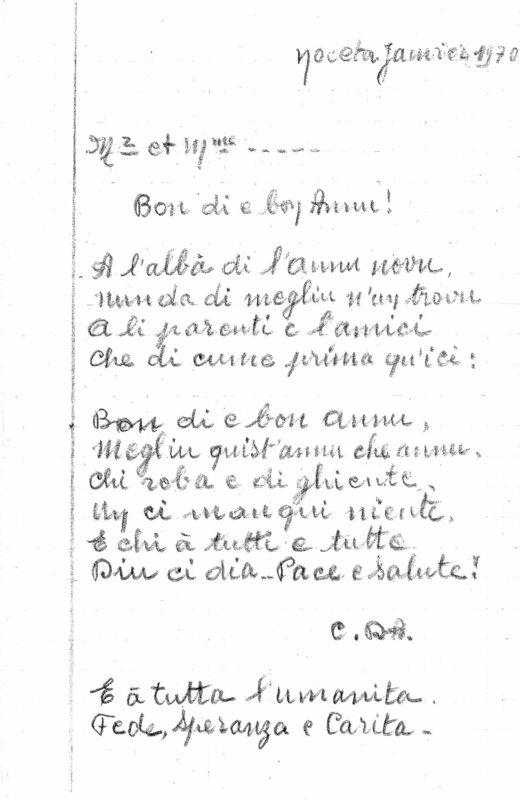 Noceta Janvier 1970
Mr et Mme -----
Bon di e boy Annu!
A l'albà di l'annu novu,
nunda di megliu n'uy trovu
A li parenti e l'amici
Che di cume prima qu'ici:
Bon di e bon annu,
Megliu quist'annu che annu.
Chi roba e di ghiente,
Uy ci manqui niente,
E chi à tutti e tutte
Diu ci dia_Pace e salute!
C. DA.
E à tutta l'umanita.
Fede, Speranza e Carita_